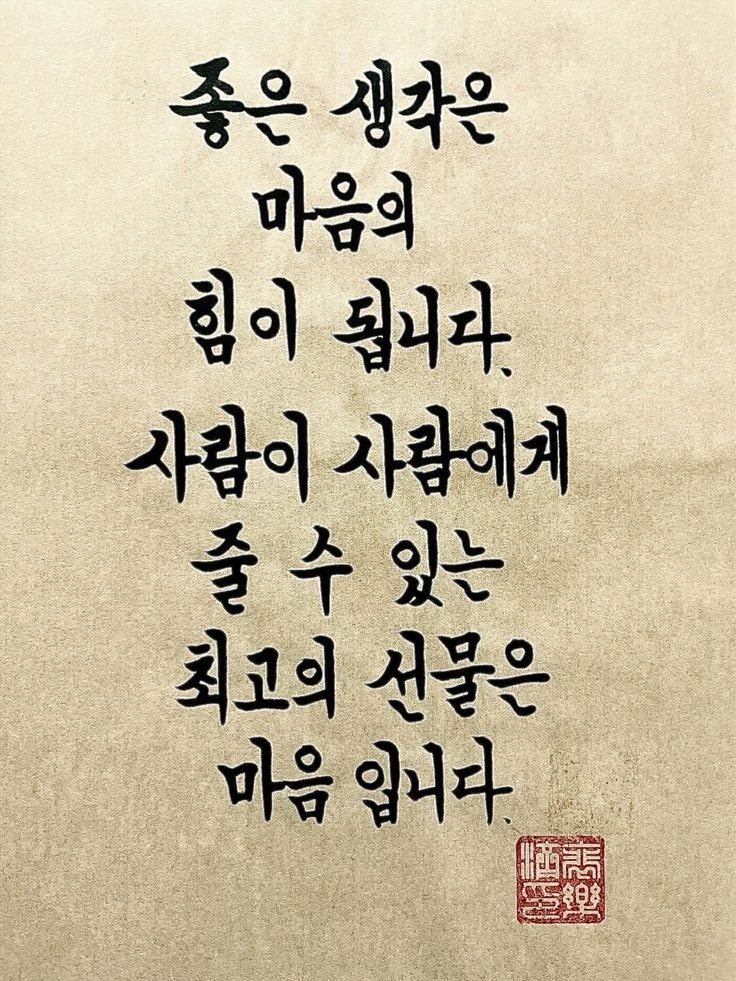 좋은 생각은
마음의
힘이 됩니다.
사람이 사람에게
줄 수 있는
최고의 선물은
마음 입니다.